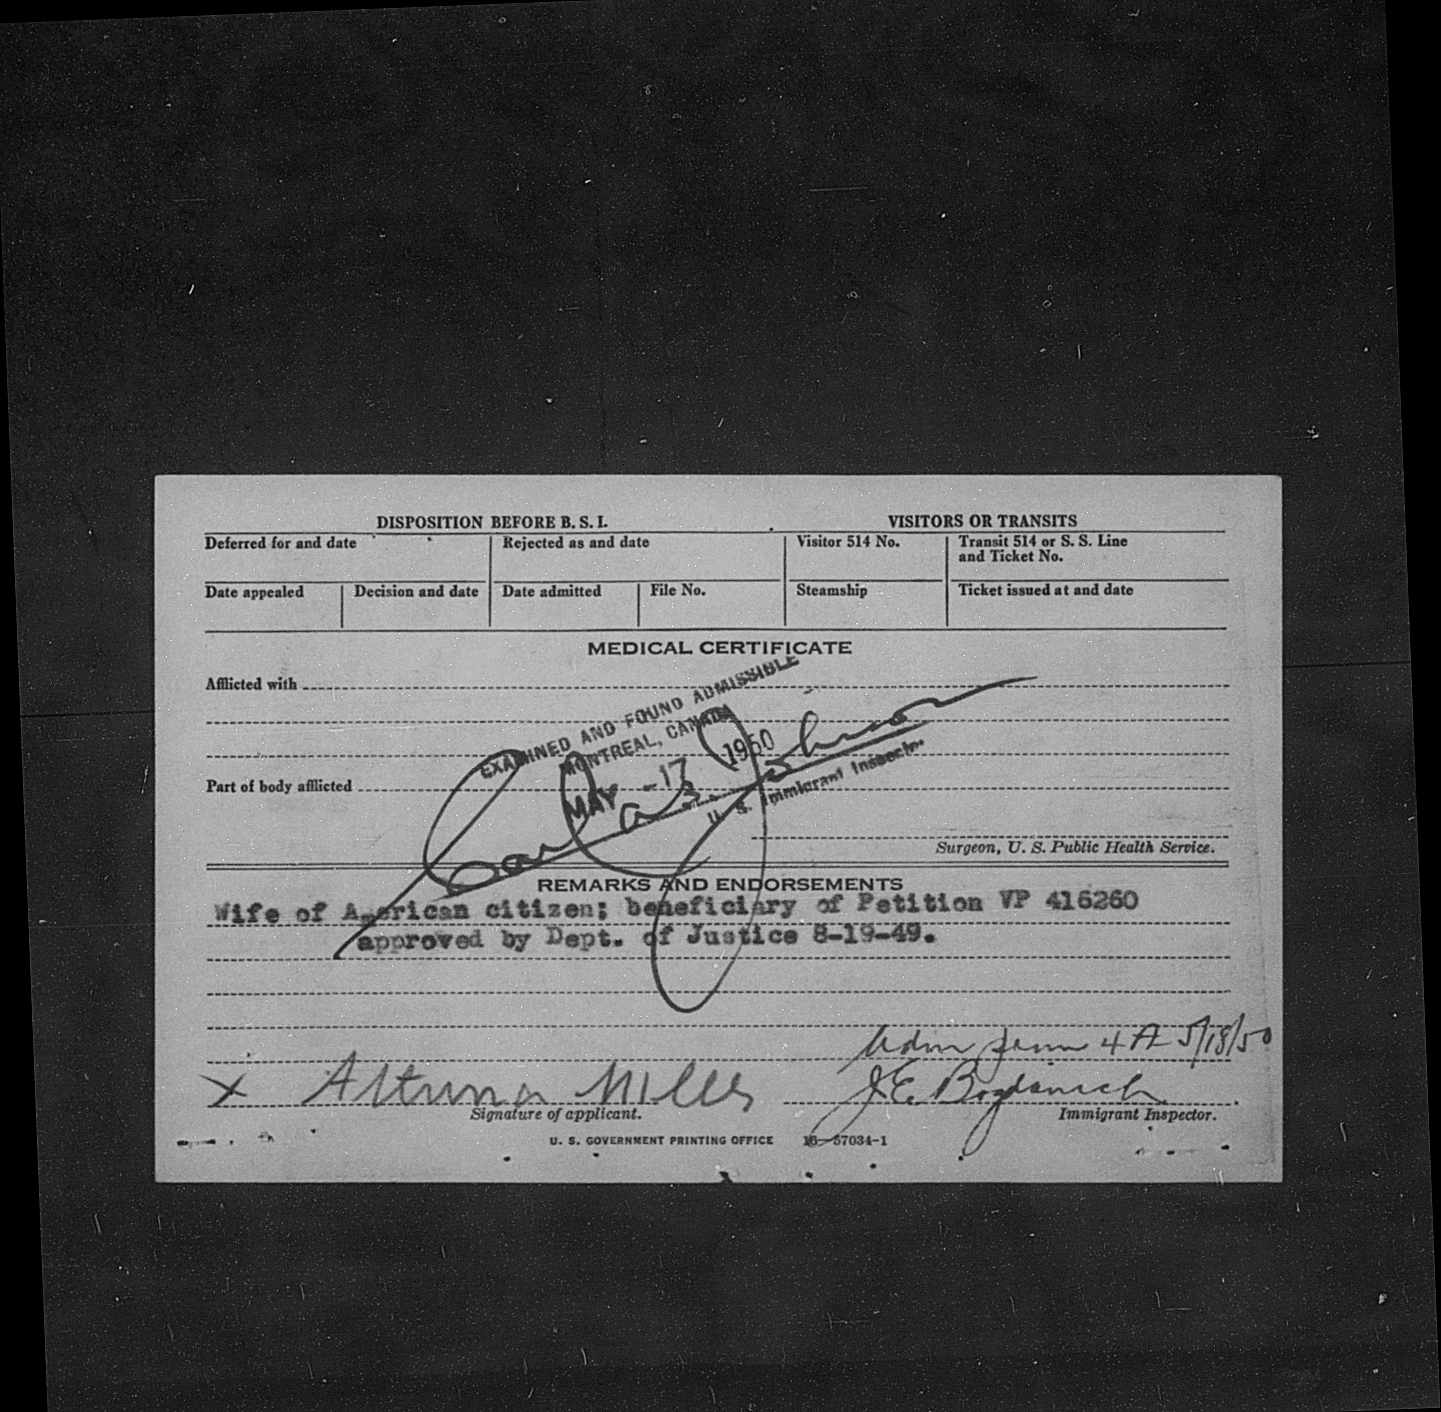 DISPOSITION BEFORE B. S. I.
VISITORS OR TRANSITS
Deferred for and date
Rejected as and date
Visitor 514 No.
Transit 514 or S. S. Line
and Ticket No.
Date appealed
Decision and date
Date admitted
File No.
Steamship
Ticket issued at and date
MEDICAL CERTIFICATE
Afflicted with
EXAMINED AND FOUND ADMISSIBLE
MONTREAL, CANADA
MAY -17 1950
U. S. Immigrant Inspector.
Part of body afflicted
Surgeon, U. S. Public Health Service.
REMARKS AND ENDORSEMENTS
Wife of American citizen; beneficiary of Petition VP 416260
approved by Dept. of Justice 8-19-49.
Adm 4 A 5/18/50
X Mills
J. E. Bogdanich
Signature of applicant.
Immigrant Inspector.
U. S. GOVERNMENT PRINTING OFFICE 16—57034-1